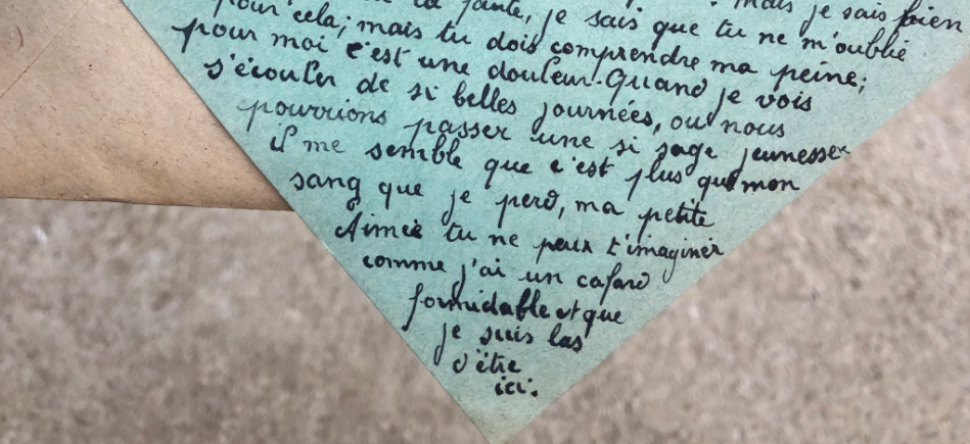 faute, je sais que tu ne m'oublie
mais je sais bien
pour cela; mais tu dois comprendre ma peine;
pour moi c'est une douleur. Quand je vois
s'écouler de si belles journées, ou nous
pourrions passer une si sage jeunesse
il me semble que c'est plus que mon
sang que je perd, ma petite
Aimée tu ne peux t'imaginer
comme j'ai un cafard
formidable et que
je suis las
d'être
ici.